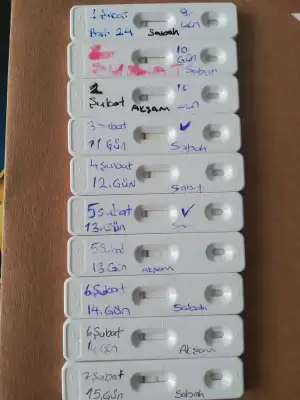 1 Şubat 9.
24 Sabah Gün
2 10
ŞUBAT Gün
Sabah
2
Şubat Akşam
3 Şubat
11 Gün Sabah
4 Şubat
12. Gün Sabah
5 Şubat
13. Gün
5 Şubat
13. Gün Akşam
6 Şubat
14. Gün Sabah
6 Şubat
Gün Akşam
7 Şubat
15. Gün Sabah